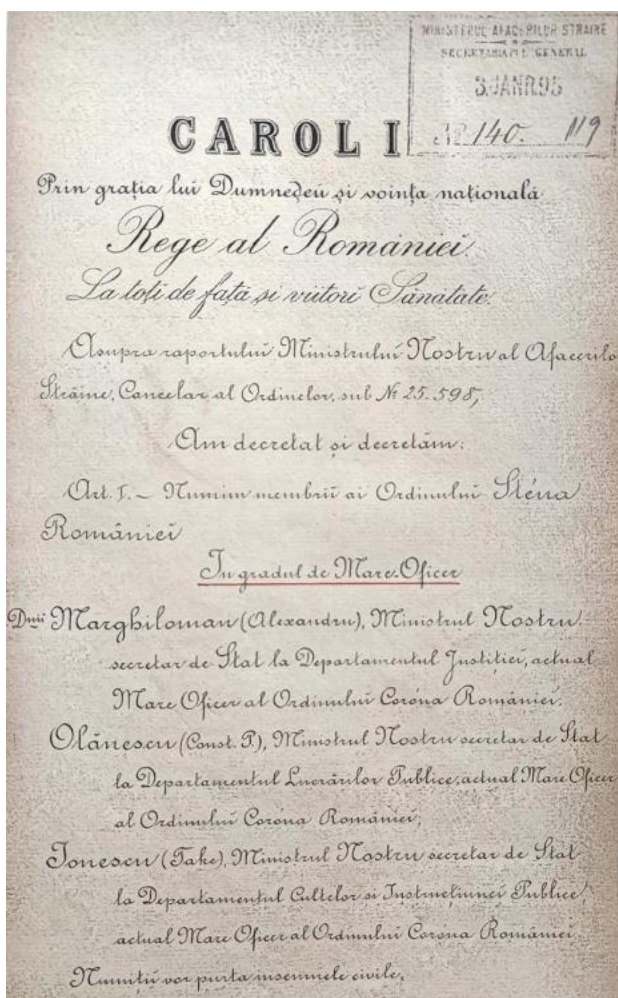 MINISTERUL AFACERILOR STRAINE
SECRETARIATUL GENERAL
3. JANR. 95
No 140. 119
CAROL I
Prin grația lui Dumneḑeu și voința națională
Rege al Românieĭ.
La toți de față și viitori Sănătate:
Asupra raportuluĭ Ministruluĭ Nostru al Afacerilo
Străine, Cancelar al Ordinelor, sub № 25.598,
Am decretat și decretăm:
Art. I. – Numim membriĭ ai Ordinuluĭ Stéua
Românieĭ
In gradul de Mare-Oficer
Dnii Marghiloman (Alexandru), Ministrul Nostru
secretar de Stat la Departamentul Justițieĭ, actual
Mare Oficer al Ordinuluĭ Coróna Românieĭ;
Olănescu (Const. P.), Ministrul Nostru secretar de Stat
la Departamentul Lucrărilor Publice, actual Mare Oficer
al Ordinuluĭ Coróna Românieĭ;
Jonescu (Take), Ministrul Nostru secretar de Stat
la Departamentul Cultelor si Instrucțiuneĭ Publice
actual Mare Oficer al Ordinuluĭ Corona Românieĭ
Numițiĭ vor purta insemnele civile.